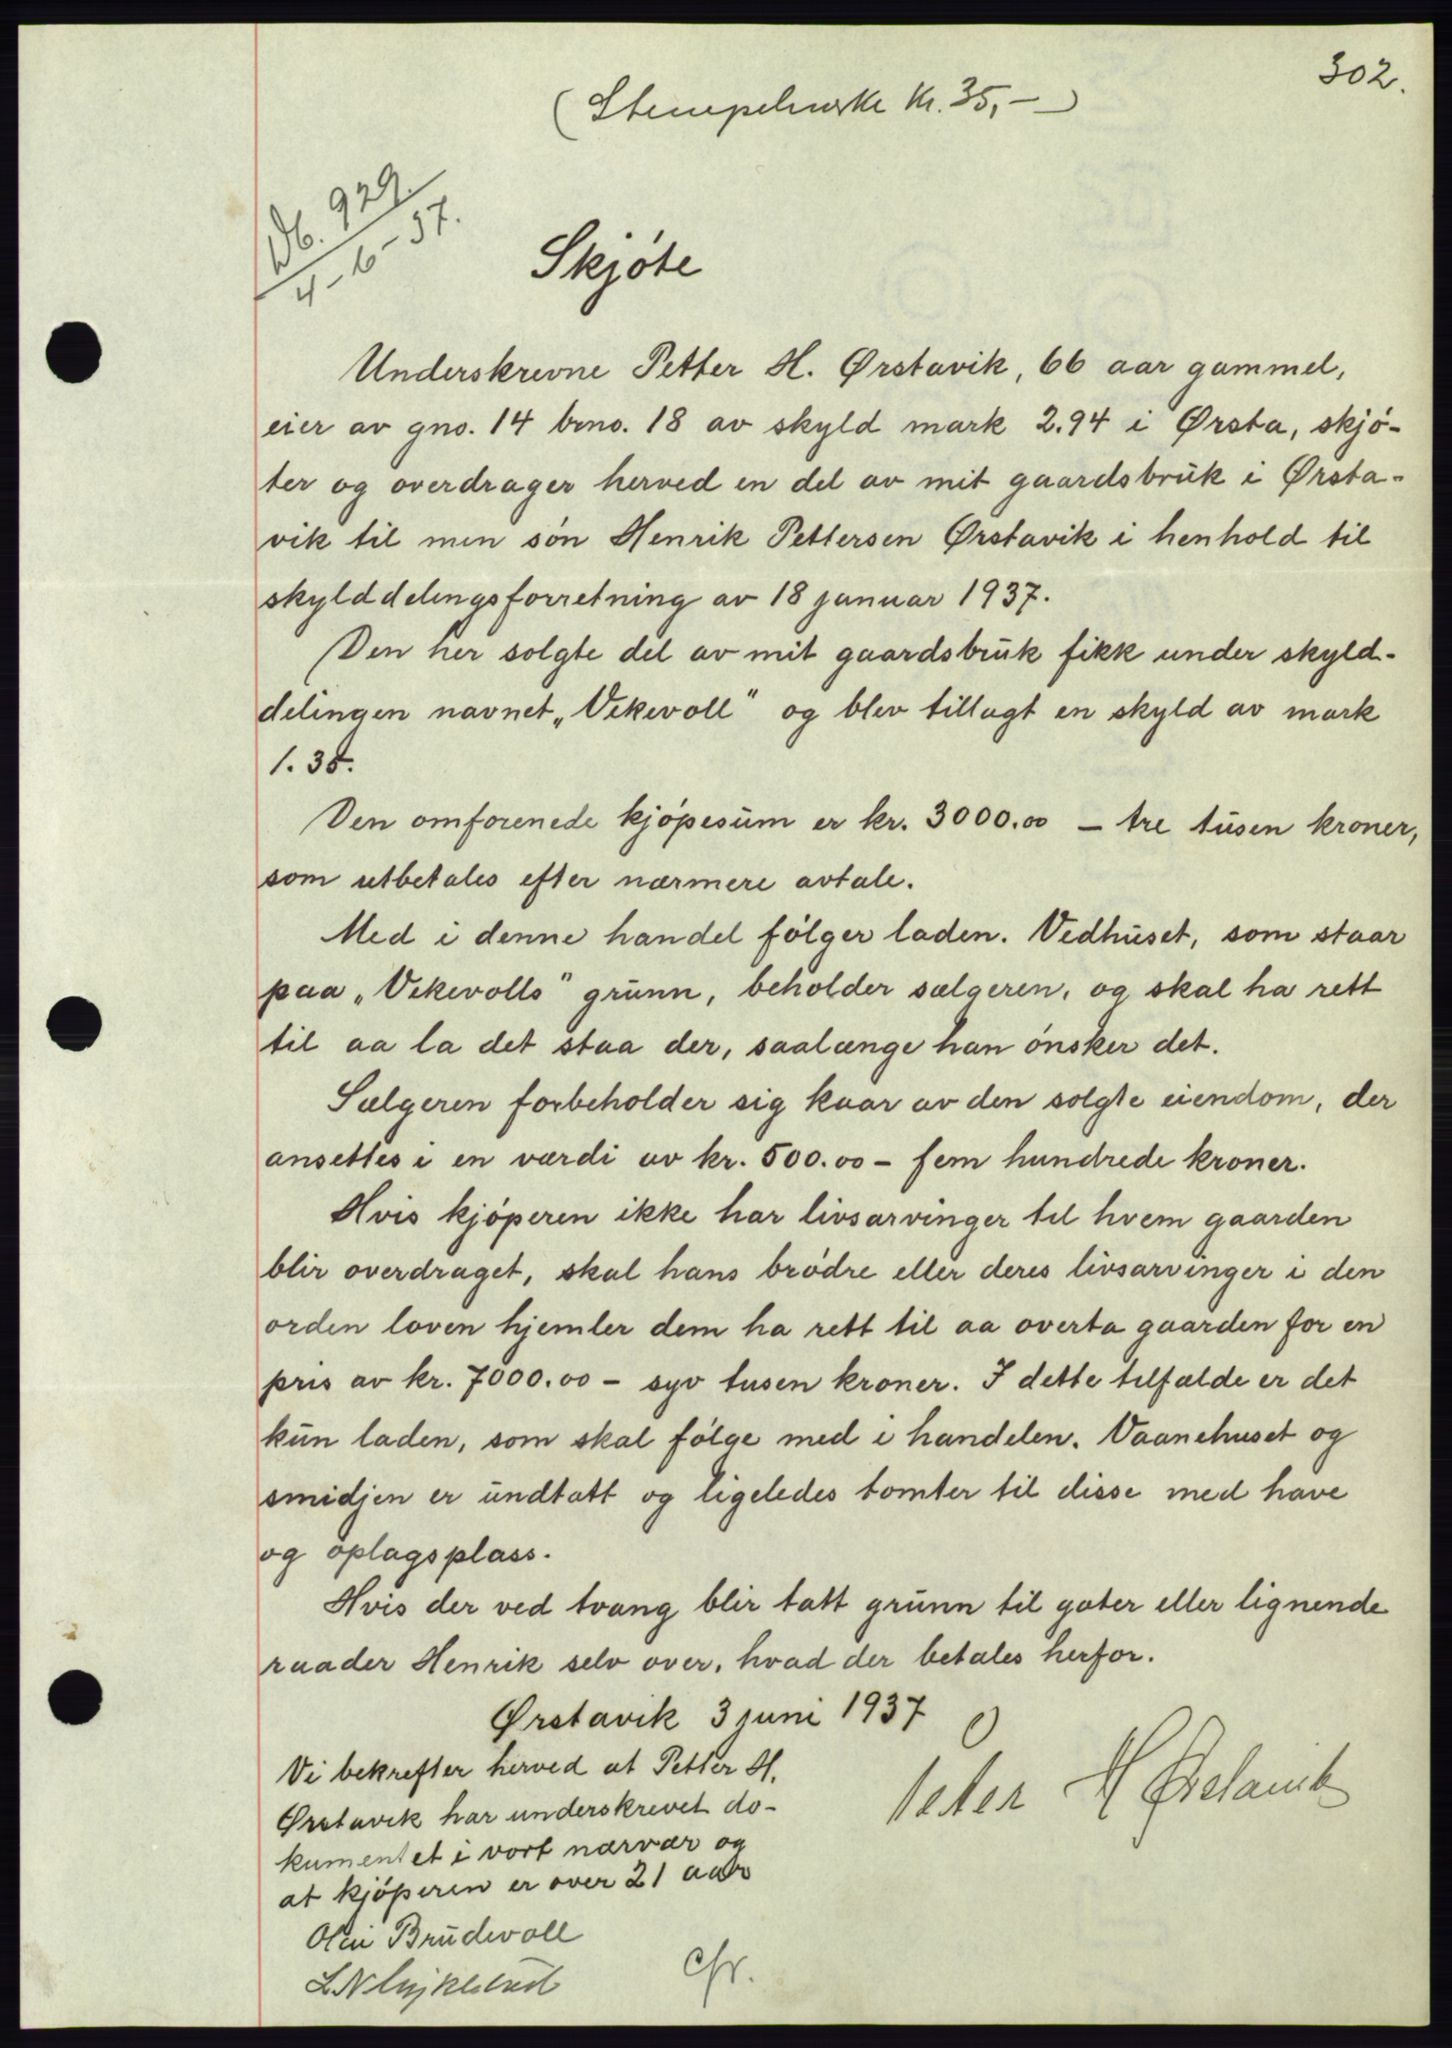 302.
(Stempelmerke kr. 35,-)
Db. 929.
4-6-37.
Skjóte
Underskrevne Petter H. Ørstavik, 66 aar gammel,
eier av gno. 14 brno. 18 av skyld mark 2.94 i Ørsta, skjó-
ter og overdrager herved en del av mit gaardsbruk i Ørsta-
vik til min són Henrik Pettersen Ørstavik i henhold til
skylddelingsforretning av 18 januar 1937.
Den her solgte del av mit gaardsbruk fikk under skyld-
delingen navnet „Vekevoll" og blev tillagt en skyld av mark
1.35.
Den omforenede kjópesum er kr. 3000.00 - tre tusen kroner,
som utbetales efter nærmere avtale.
Med i denne handel fólger laden. Vedhuset, som staar
paa „Vekevolls" grunn, beholder sælgeren, og skal ha rett
til aa la det staa der, saalænge han ónsker det.
Sælgeren forbeholder sig kaar av den solgte eiendom, der
ansettes i en værdi av kr. 500.00 - fem hundrede kroner.
Hvis kjóperen ikke har livsarvinger til hvem gaarden
blir overdraget, skal hans bródre eller deres livsarvinger i den
orden loven hjemler dem ha rett til aa overta gaarden for en
pris av kr. 7000.00 - syv tusen kroner. I dette tilfælde er det
kun laden, som skal fólge med i handelen. Vaanehuset og
smidjen er undtatt og ligeledes tomter til disse med have
og oplagsplass.
Hvis der ved tvang blir tatt grunn til gater eller lignende
raader Henrik selv over, hvad der betales herfor.
Ørstavik 3 juni 1937
Peter H Ørstavik
Vi bekrefter herved at Petter H.
Ørstavik har underskrevet do-
kumentet i vort nærvær og
at kjóperen er over 21 aar
Olai Brudevoll
L N